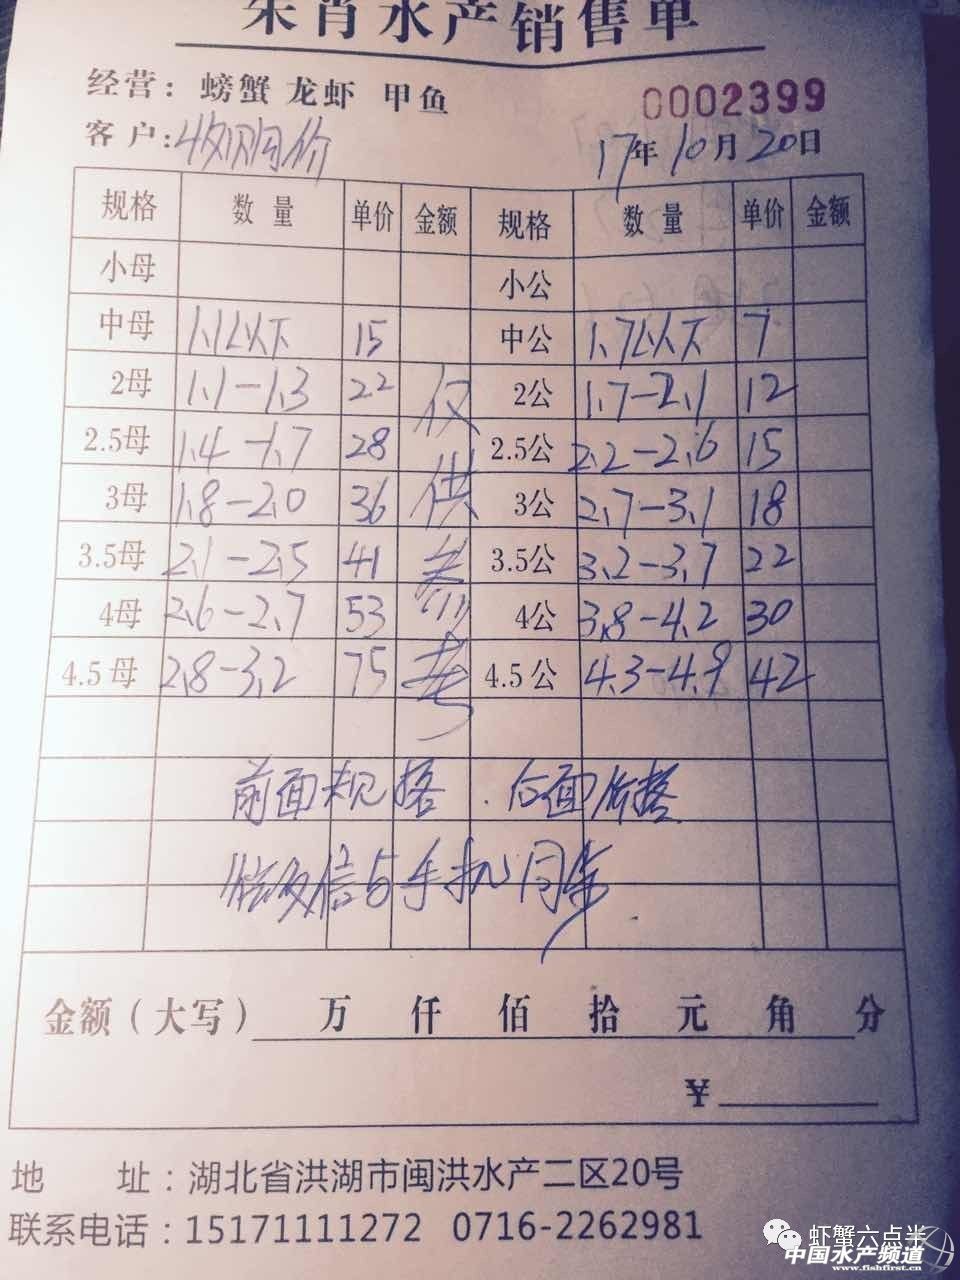 朱肖水产销售单
经营：螃蟹 龙虾 甲鱼
0002399
客户：收购价 17年10月20日
规格 数量 单价 金额 规格 数量 单价 金额
小母 小公
中母 1.1以下 15 中公 1.7以下 7
2母 1.1-1.3 22 2公 1.7-2.1 12
2.5母 1.4-1.7 28 2.5公 2.2-2.6 15
3母 1.8-2.0 36 3公 2.7-3.1 18
3.5母 2.1-2.5 41 3.5公 3.2-3.7 22
4母 2.6-2.7 53 4公 3.8-4.2 30
4.5母 2.8-3.2 75 4.5公 4.3-4.9 42
仅供参考
前面规格.后面价格
微信与手机同号.
金额（大写） 万 仟 佰 拾 元 角 分
¥
地 址：湖北省洪湖市闽洪水产二区20号
联系电话：15171111272 0716-2262981
虾蟹六点半
中国水产频道
www.fishfirst.cn